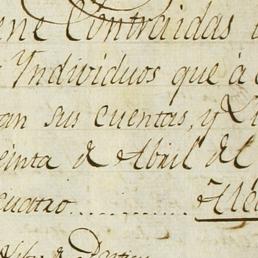 ene Contraidas
Yndividuos que à
an sus cuentas, y Li
einta de Abril del
cuatro